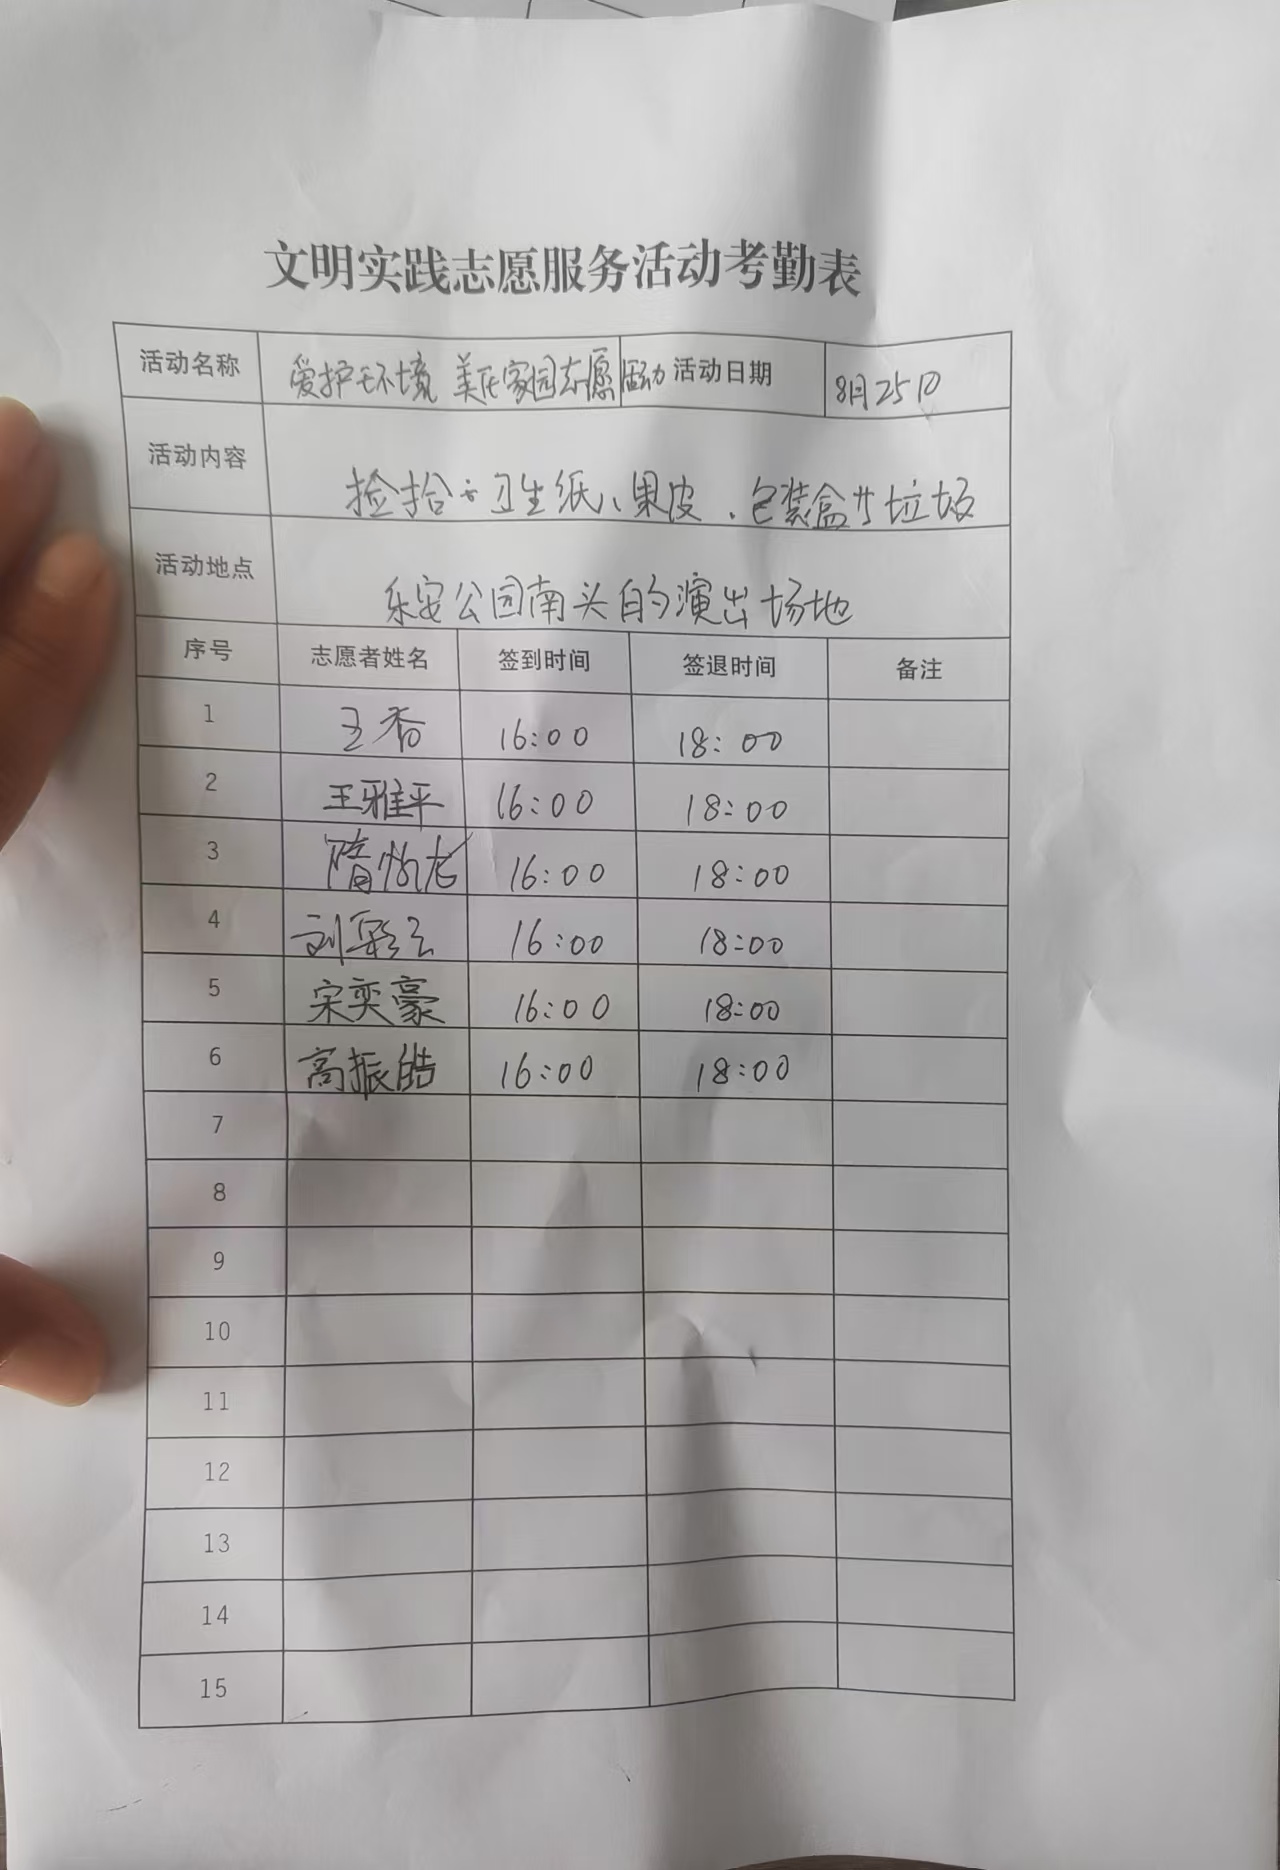 文明实践志愿服务活动考勤表
活动名称 爱护环境 美化家园志愿活动 活动日期 8月25日
活动内容 捡拾卫生纸、果皮、包装盒等垃圾
活动地点 乐安公园南头的演出场地
序号 志愿者姓名 签到时间 签退时间 备注
1 王香 16:00 18:00
2 王雅平 16:00 18:00
3 隋 16:00 18:00
4 刘彩云 16:00 18:00
5 宋奕豪 16:00 18:00
6 高振皓 16:00 18:00
7
8
9
10
11
12
13
14
15